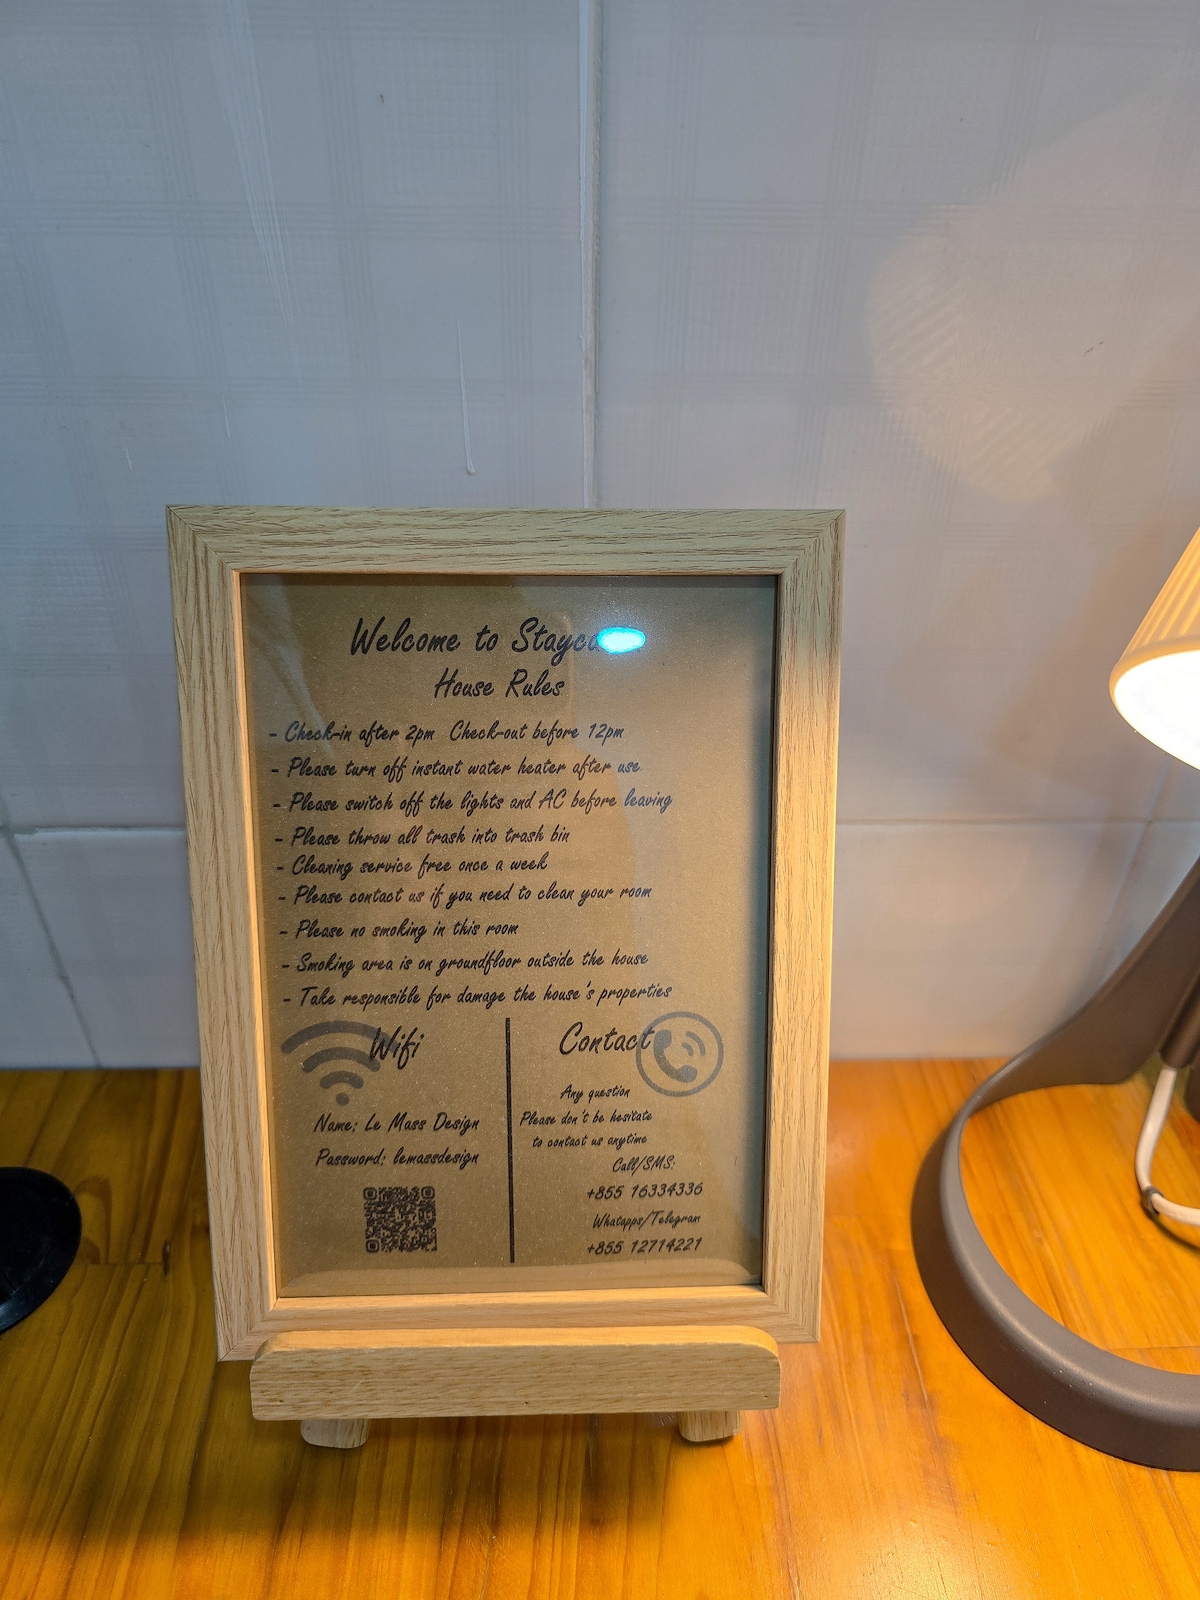 Welcome to
House Rules
- Check-in after 2pm Check-out before 12pm
- Please turn off instant water heater after use
- Please switch off the lights and AC before leaving
- Please throw all trash into trash bin
- Cleaning service free once a week
- Please contact us if you need to clean your room
- Please no smoking in this room
- Smoking area is on groundfloor outside the house
- Take responsible for damage the house's properties
Wifi
Name: Le Mass Design
Password: lemassdesign
Contact
Any question
Please don't be hesitate
to contact us anytime
Call/SMS:
+855 16334336
Whatapps/Telegram
+855 12714221